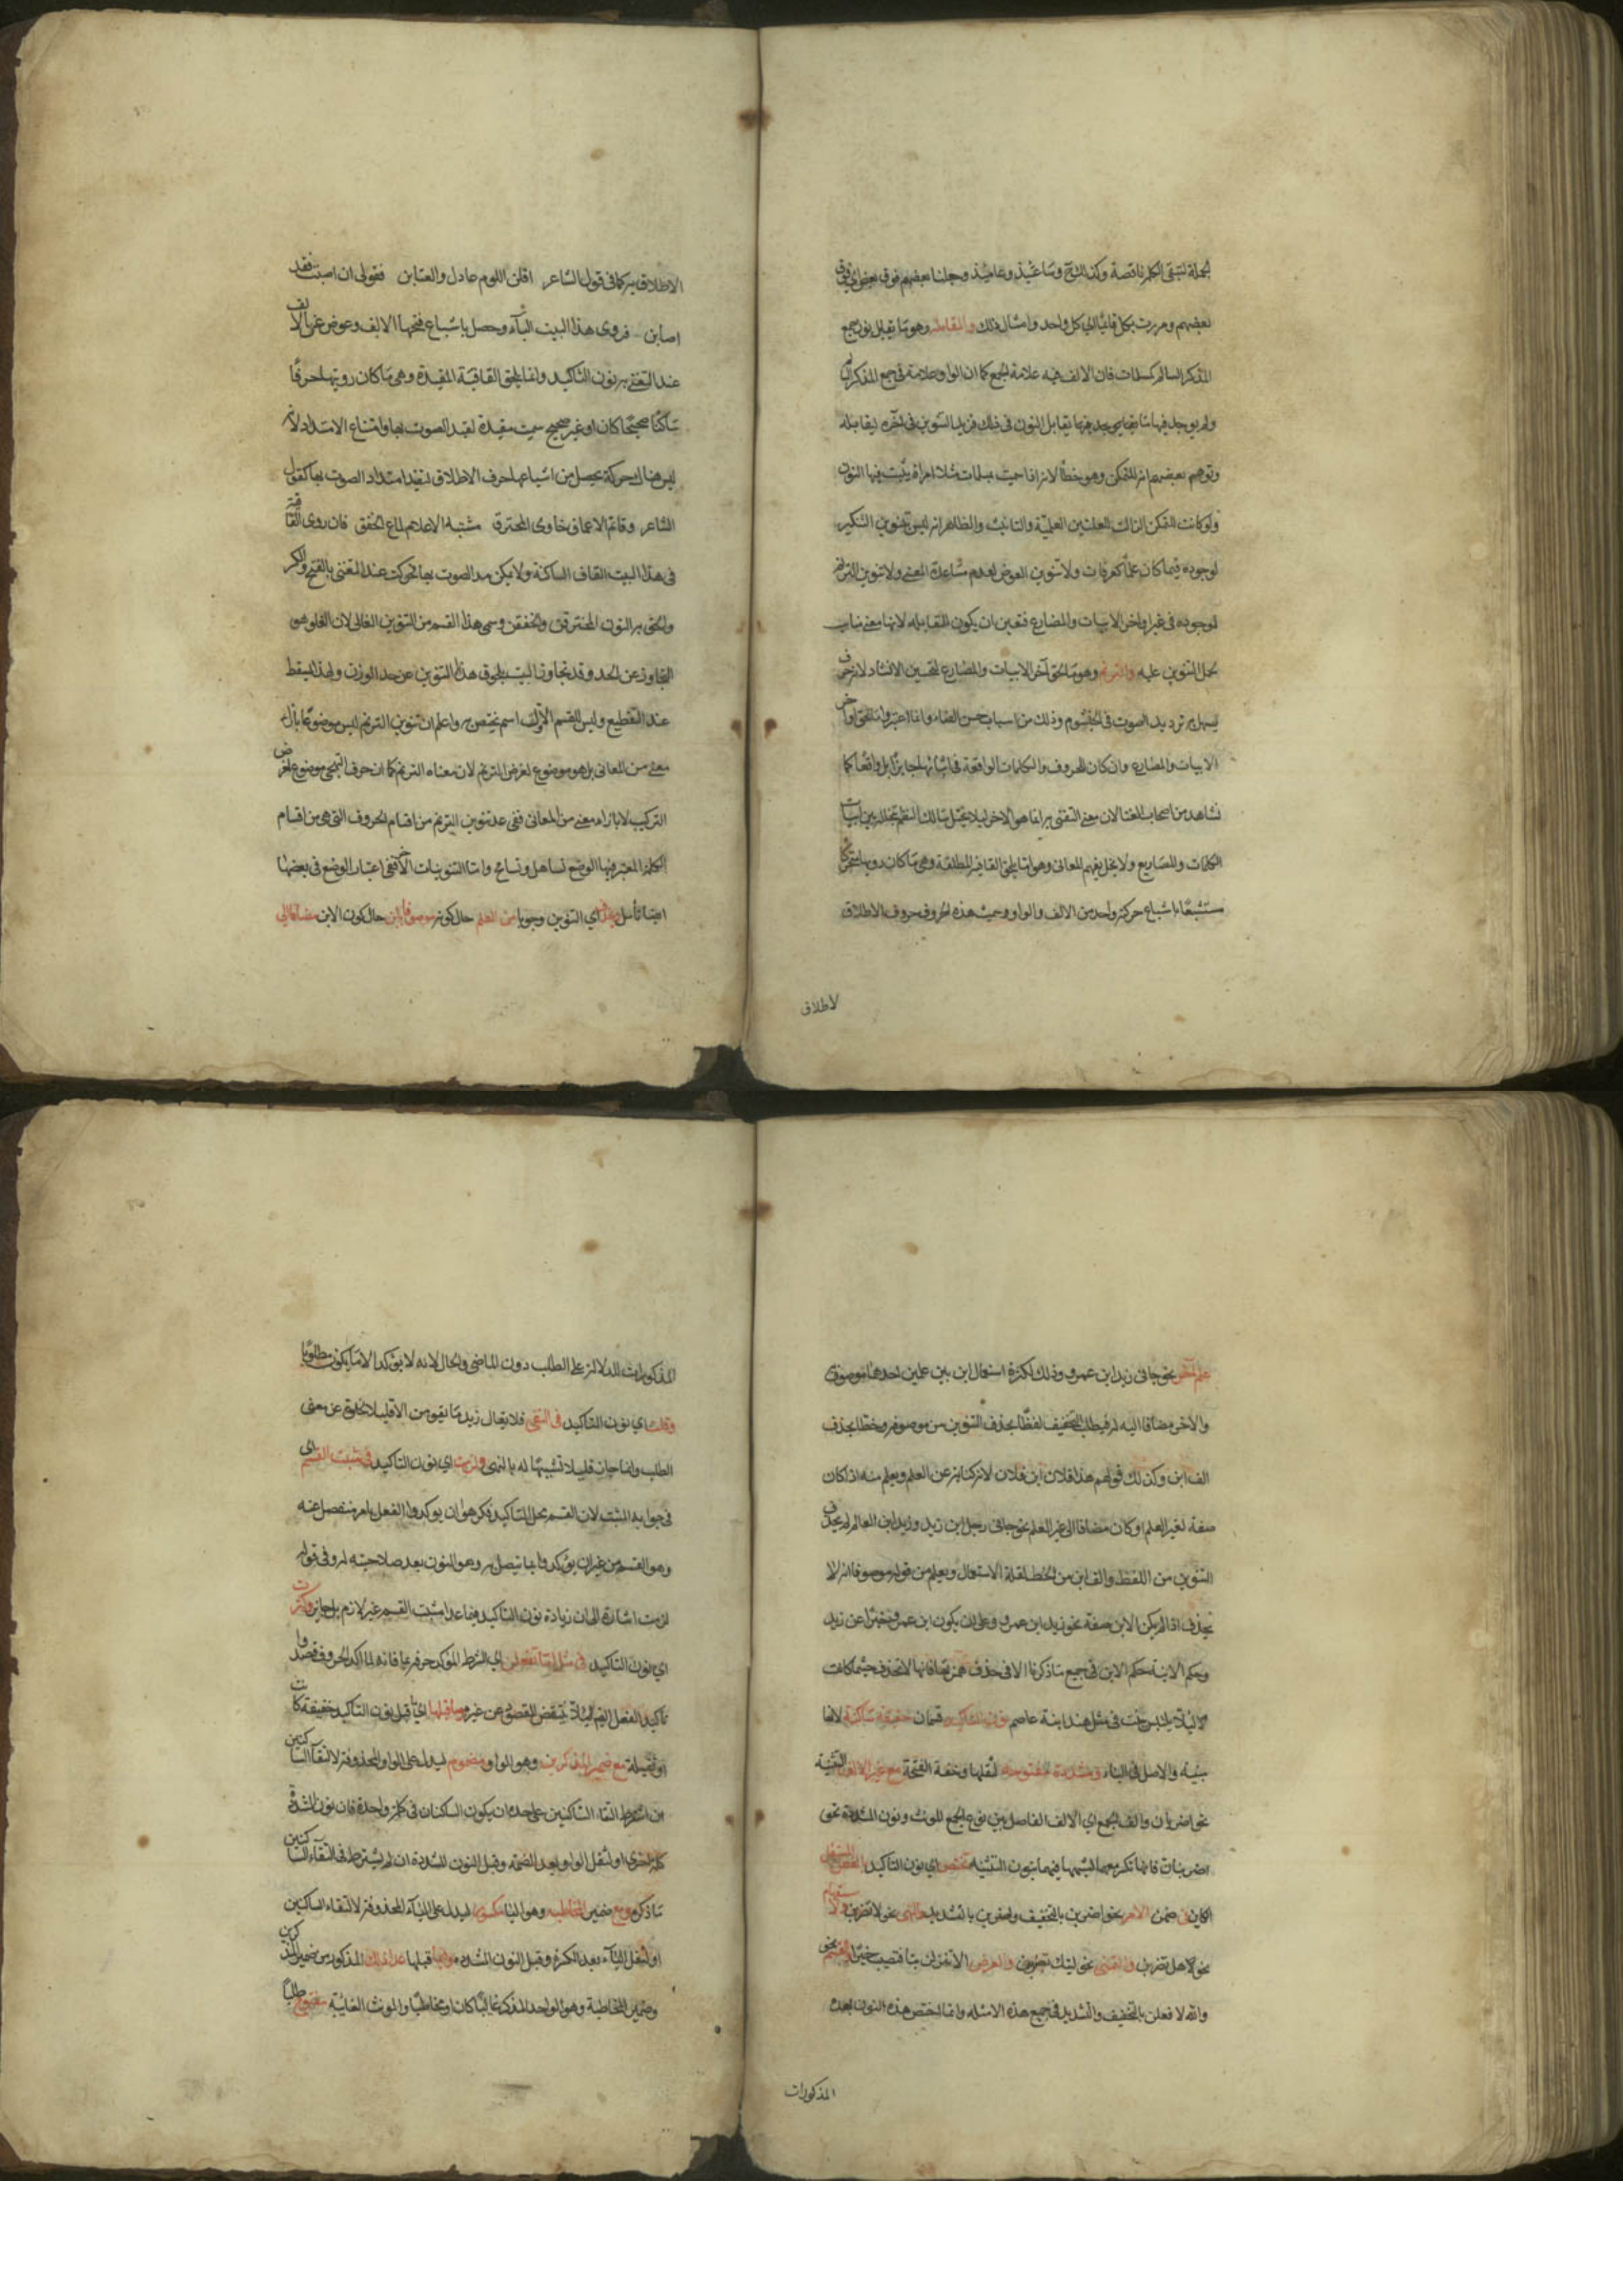 الجملة لتبقى الكلمة ناقصة وكذلك ح وساعتئذ وعامئذ وجعلنا بعضهم فوق بعض اي فوق
بعضهم ومررت بكل قائما اي بكل واحد وامثال ذلك والمقابلة وهو ما يقابل نون جمع
المذكر السالم كمسلمات فان الالف فيه علامة الجمع كما ان الواو علامة في جمع المذكر السالم
ولم يوجد فيها ما يقابل النون في ذلك فزيد التنوين في آخره ليقابله
وتوهم بعضهم انه للتمكن وهو خطأ لانه اذا سميت بمسلمات مثلا امرأة يثبت فيها التنوين
ولو كانت للتمكن لزالت للعلتين العلمية والتانيث والظاهر انه ليس تنوين التنكير
لوجوده فيما كان علما كعرفات ولا تنوين العوض لعدم مساعدة المعنى ولا تنوين الترنم
لوجوده في غير اواخر الابيات والمصاريع فتعين ان يكون للمقابلة لانها معنى مناسب
لحمل التنوين عليه والترنم وهو ما لحق آخر الابيات والمصاريع لتحسين الانشاد لانه حرف
يسهل به ترديد الصوت في الخيشوم وذلك من اسباب حسن الغناء وانما اعتبروا ما يلحق اواخر
الابيات والمصاريع وان كان للحروف والكلمات الواقعة في اثنائها جايزا بل واقعا كما
نشاهد من اصحاب الغناء لان معنى التغني به انما هو الاخر ليلا يختل سالك النظم بتخلله بين ابيات
الكلمات والمصاريع ولا يخل بفهم المعاني وهو اما يلحق القافية المطلقة وهي ما كان رويها متحركا
مستتبعا باشباع حركته واحد من الالف والواو وسميت هذه الحروف حروف الاطلاق
لاطلاق
الاطلاق به كما في قول الشاعر اقلى اللوم عاذل والعتابن فقولي ان اصبت فقد
اصابن فروى هذا البيت الباء وحصل باشباع فتحها الالف وعوض عن الالف
عند التغني به نون التاكيد واما يلحق القافية المقيدة وهي ما كان رويها حرفا
ساكنا صحيحا كان او غير صحيح سميت مقيدة لقيد الصوت بها وامتناع الامتداد لانه
ليس هناك حركة يحصل من اشباعها حرف الاطلاق ليفيد امتداد الصوت بها كقول
الشاعر وقاتم الاعماق خاوى المخترق مشتبه الاعلام لماع الخفق فان روى القافية
في هذا البيت القاف الساكنة ولا يمكن مد الصوت بها فحركت عند التغني بالفتح والكسر
والحق به النون المخترقن والخفقن وسمى هذا القسم من التنوين الغالي لان الغلو هو
التجاوز عن الحد وقد تجاوز البيت بلحوق هذا التنوين عن حد الوزن ولهذا يسقط
عند التقطيع وليس للقسم الاول اسم يختص به واعلم ان تنوين الترنم ليس موضوعا بازاء
معنى من المعاني بل هو موضوع لغرض الترنم لان معناه الترنم كما ان حرف التهجي موضوع لغرض
التركيب لا بازاء معنى من المعاني ففي عد تنوين الترنم من اقسام الحروف التي هي من اقسام
الكلمة المعتبر فيها الوضع تساهل وتسامح واما التنوينات الاخر ففي اعتبار الوضع في بعضها
ايضا تأمل ويحذف اي التنوين وجوبا من العلم حال كونه موصوفا بابن حال كون الابن مضافا الى
علم آخر نحو جاني زيد ابن عمرو وذلك لكثرة استعمال ابن بين علمين احدهما موصوف
والاخر مضاف اليه له فطلب التخفيف لفظا بحذف التنوين من موصوفه وخطا بحذف
الف ابن وكذلك قولهم هذا فلان ابن فلان لانه كناية عن العلم ويعلم منه اذا كان
صفة لغير العلم او كان مضافا الى غير العلم نحو جاني رجل ابن زيد وزيد ابن العالم لم يحذف
التنوين من اللفظ والف ابن من الخط لقلة الاستعمال ويعلم من قوله موصوفا انه لا
يحذف اذا لم يكن الابن صفة نحو زيد ابن عمرو وعلى ان يكون ابن عمرو خبرا عن زيد
وحكم الابنة حكم الابن في جميع ما ذكرنا الا في حذف همزتها فانها لا تحذف حيثما كانت
لئلا يلتبس ببنت في مثل هند ابنة عاصم نون التاكيد قسمان خفيفة ساكنة لانها
مبنية والاصل في البناء ومشددة مفتوحة لثقلها وخفة الفتحة مع غير الالف التثنية
نحو اضربان والف الجمع اي الالف الفاصل بين نون جمع المونث ونون المشددة نحو
اضربنان فانها تكسر معهما لشبهها فيهما بنون التثنية تختص اي نون التاكيد بالفعل المستقبل
الكاين في ضمن الامر نحو اضربن بالتخفيف واضربن بالتشديد والنهى نحو لا تضربن والاستفهام
نحو هل تضربن والتمنى نحو ليتك تضربن والعرض الا تنزلن بنا فتصيب خيرا والقسم نحو
والله لافعلن بالتخفيف والتشديد في جميع هذه الامثلة وانما اختص هذه النون بهذه
المذكورات
المذكورات الدلالة على الطلب دون الماضي والحال لانه لا يؤكد الا ما يكون مطلوبا
وقلت اي نون التاكيد في النفى فلا يقال زيد ما يقومن الا قليلا لخلوه عن معنى
الطلب وانما جاز قليلا تشبيها له بالنهى ولزمت اي نون التاكيد في مثبت القسم اي
في جوابه المثبت لان القسم محل التاكيد فكرهوا ان يوكدوا الفعل بامر منفصل عنه
وهو القسم من غير ان يؤكدوا بما يتصل به وهو النون بعد صلاحيته له وفي قوله
لزمت اشارة الى ان زيادة نون التاكيد فيما عدا مثبت القسم غير لازم بل جايز وكثرت
اي نون التاكيد في مثل اما تفعلن اي الشرط المؤكد حرفه بما فانه لما اكد الحروف قصدوا
تاكيد الفعل ايضا لئلا ينتقض المقصود عن غيره وما قبلها اي ما قبل نون التاكيد خفيفة كانت
او ثقيلة مع ضمير المذكرين وهو الواو مضموم ليدل على الواو المحذوفة لالتقاء الساكنين
ان اشترط التقاء الساكنين على حده ان يكون الساكنان في كلمة واحدة فان نون المشددة
كلمة اخرى او لثقل الواو بعد الضمة وقبل النون المشددة ان لم يشترط في التقاء الساكنين
ما ذكر ومع ضمير المخاطبة وهو الياء مكسور ليدل على الياء المحذوفة لالتقاء الساكنين
او لثقل الياء بعد الكسرة وقبل النون المشددة وما قبلها عدا ذلك المذكور من ضمير المذكرين
وضمير المخاطبة وهو الواحد المذكر غائبا كان او مخاطبا والمونث الغايبة مفتوح طلبا